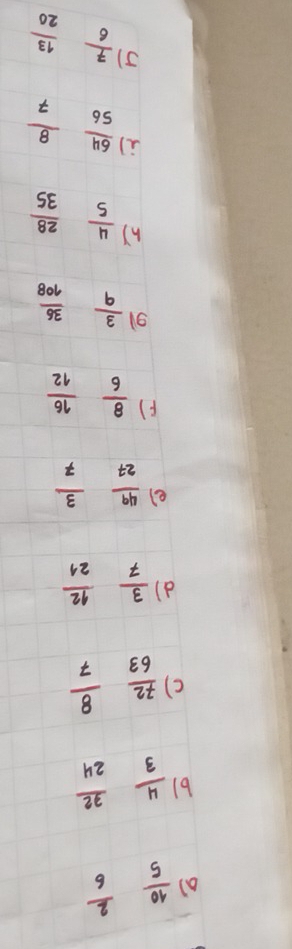 a) 10/5 2/6
b) 4/3 32/24
c) 72/63 8/7
d) 3/7 12/21
e) 49/27 3/7
f) 8/6 16/12
g) 3/9 36/108
h) 4/5 28/35
i) 64/56 8/7
J) 7/6 13/20